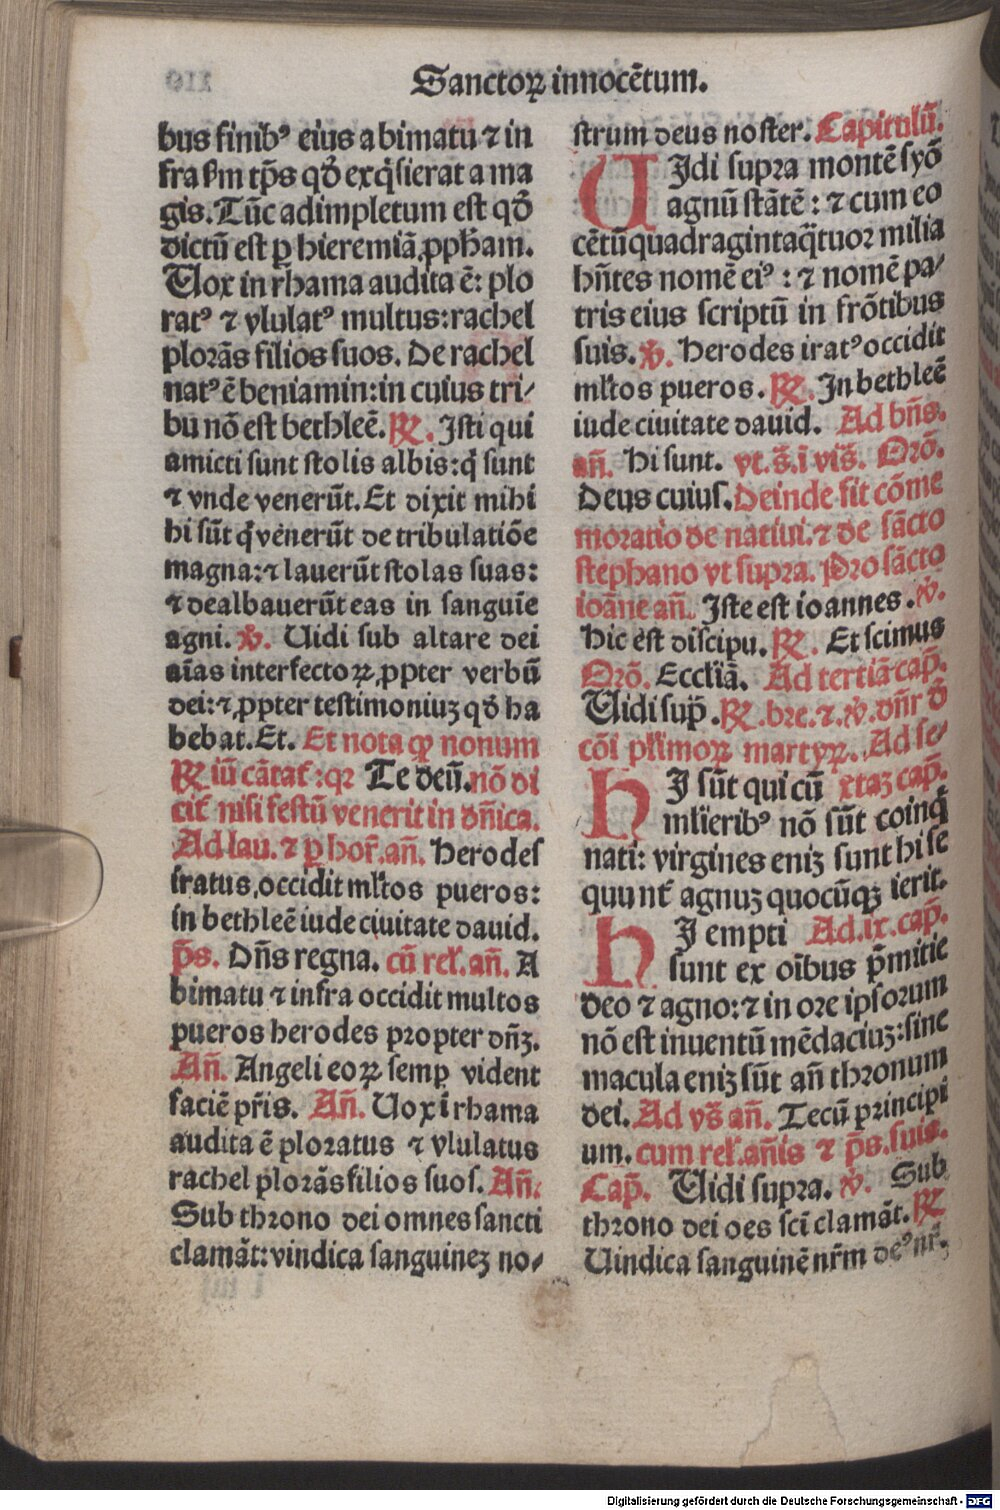 Sanctoꝝ innocētum.
bus finibꝰ eius a bimatu ⁊ in
fra ẜm tp̄s qd̄ exq̇sierat a ma
gis. Tūc adimpletum est qd̄
dictū est ꝑ hieremiā ꝓph̄am.
Uox in rhama audita ē: plo
ratꝰ ⁊ vlulatꝰ multus: rachel
plorās filios suos. De rachel
natꝰ ē beniamin: in cuius tri⸗
bu nō est bethleē. ℞. Isti qui
amicti sunt stolis albis: q̇ sunt
⁊ vnde venerūt. Et dixit mihi
hi sūt q̇ venerūt de tribulatiōe
magna: ⁊ lauerūt stolas suas:
⁊ dealbauerūt eas in sanguīe
agni. ℣. Uidi sub altare dei
aīas interfectoꝝ ꝓpter verbū
dei: ⁊ ꝓpter testimoniuꝫ qd̄ ha
bebat. Et. Et nota ꝙ nonum
℞ iū cātat᷑: qꝛ Te deū. nō di
cit᷑ nisi festū venerit in dn̄ica.
Ad lau. ⁊ ꝑ hor̄. an̄. Herodes
iratus, occidit ml̄tos pueros:
in bethleē iude ciuitate dauid.
p̄s. Dn̄s regna. cū rel̄. an̄. A
bimatu ⁊ infra occidit multos
pueros herodes propter dn̄ꝫ.
An̄. Angeli eoꝝ semꝑ vident
faciē pr̄is. An̄. Uox ī rhama
audita ē ploratus ⁊ vlulatus
rachel plorās filios suos. An̄.
Sub throno dei omnes sancti
clamāt: vindica sanguineꝫ no⸗
strum deus noster. Capitulū.
UIdi supra montē syō
agnū stātē: ⁊ cum eo
cētū quadraginta q̄tuor milia
hn̄tes nomē eiꝰ: ⁊ nomē pa⸗
tris eius scriptū in frōtibus
suis. ℣. Herodes iratꝰ occidit
ml̄tos pueros. ℞. In bethleē
iude ciuitate dauid. Ad bn̄s.
an̄. Hi sunt. vt. s̄. ī vis̄. Orō.
Deus cuius. Deinde fit cōme
moratio de natiui. ⁊ de sācto
stephano vt supra. Pro sācto
ioāne an̄. Iste est ioannes. ℣.
Hic est discipu. ℞. Et scimus
Orō. Eccl̄iā. Ad tertiā cap̄.
Uidi sup̄. ℞. bre. ⁊. ℣. dn̄r d̄
cōi pl̄imoꝝ martyꝝ. Ad se⸗
HI sūt qui cū xtaꝫ cap̄.
ml̄ieribꝰ nō sūt coinq̇
nati: virgines eniꝫ sunt hi se
quunt᷑ agnuꝫ quocūqꝫ ierit.
HI empti Ad. ix. cap̄.
sunt ex oībus p̄mitie
deo ⁊ agno: ⁊ in ore ipsorum
nō est inuentū mēdaciuꝫ: sine
macula eniꝫ sūt an̄ thronum
dei. Ad vs̄ an̄. Tecū principi
um. cum rel̄. an̄is ⁊ p̄s. suis.
Cap̄. Uidi supra. ℣. Sub
throno dei oēs sc̄i clamāt. ℞
Uindica sanguinē nr̄m deꝰ nr̄.
Digitalisierung gefördert durch die Deutsche Forschungsgemeinschaft - DFG